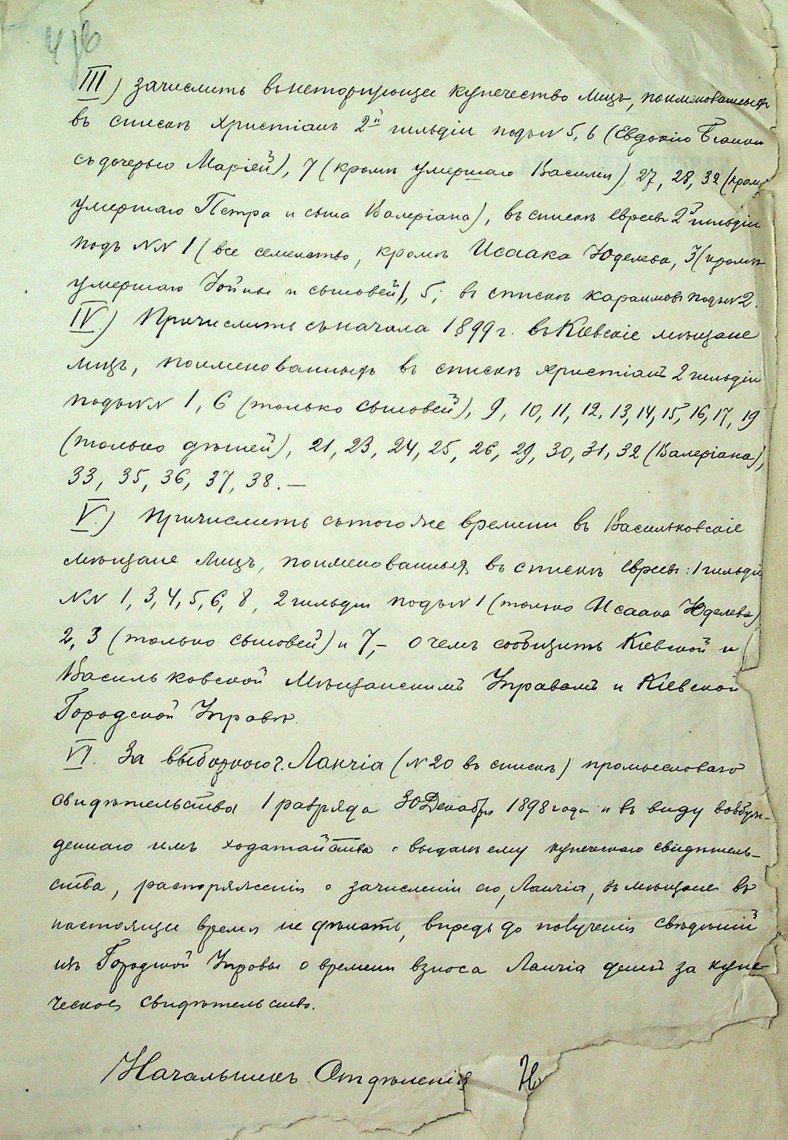 III) зачислить въ неторгующее купечество лицъ, поименованныхъ
въ списке христіанъ 2й гильдіи подъ № 5, 6 (Евдокію
съ дочерью Маріей), 7 (кроме умершаго Василія) 27, 28, 32 (кроме
умершаго Петра и сына Валеріана), въ списке евреевъ 2й гильдіи
подъ №№ 1 (все семейство, кроме Исаака Юделева, 3 (кроме
умершаго и сыновей), 5; въ списке караимовъ подъ № 2.
IV.) Причислить съ начала 1899 г. въ Кіевскіе мещане
лицъ, поименованныхъ въ списке христіанъ 2 гильдіи
подъ №№ 1, 6 (только сыновей), 9, 10, 11, 12, 13, 14, 15, 16, 17, 19
(только детей), 21, 23, 24, 25, 26, 29, 30, 31, 32 (Валеріана),
33, 35, 36, 37, 38. —
V.) Причислить съ того же времени въ Васильковскіе
мещане лицъ, поименованныхъ въ списке евреевъ: 1 гильдіи
№№ 1, 3, 4, 5, 6, 8, 2 гильдіи подъ № 1 (только Исаака Юделева)
2, 3 (только сыновей) и 7, – о чемъ сообщить Кіевской и
Васильковской Мещанскимъ Управамъ и Кіевской
Городской Управе.
VI. За выборкою г. Ланчіа (№ 20 въ списке) промысловаго
свидетельства 1 разряда 30 Декабря 1898 года и въ виду возбуж-
деннаго имъ ходатайства о выдаче ему купеческаго свидетель-
ства, распоряженія о зачисленіи его, Ланчіа, въ мещане въ
настоящее время не делать, впредь до полученія сведеній
изъ Городской Управы о времени взноса Ланчіа денегъ за купе-
ческое свидетельство.
Начальникъ Отделенія